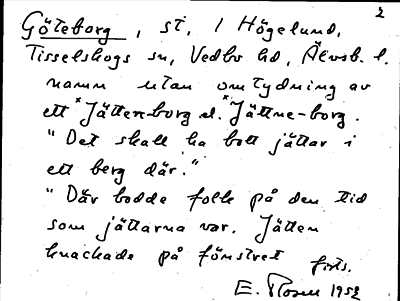 2
Göteborg, st, / Högelund,
Tisselskogs sn, Vedbo hd, Älvsb. l.
namn utan omtydning av
ett *Jätten-borg el. *Jättne-borg.
"Det skall ha bott jättar i
ett berg där."
"Där bodde folk på den tid
som jättarna var. Jätten
knackade på fönstret
E. Rosell 1952